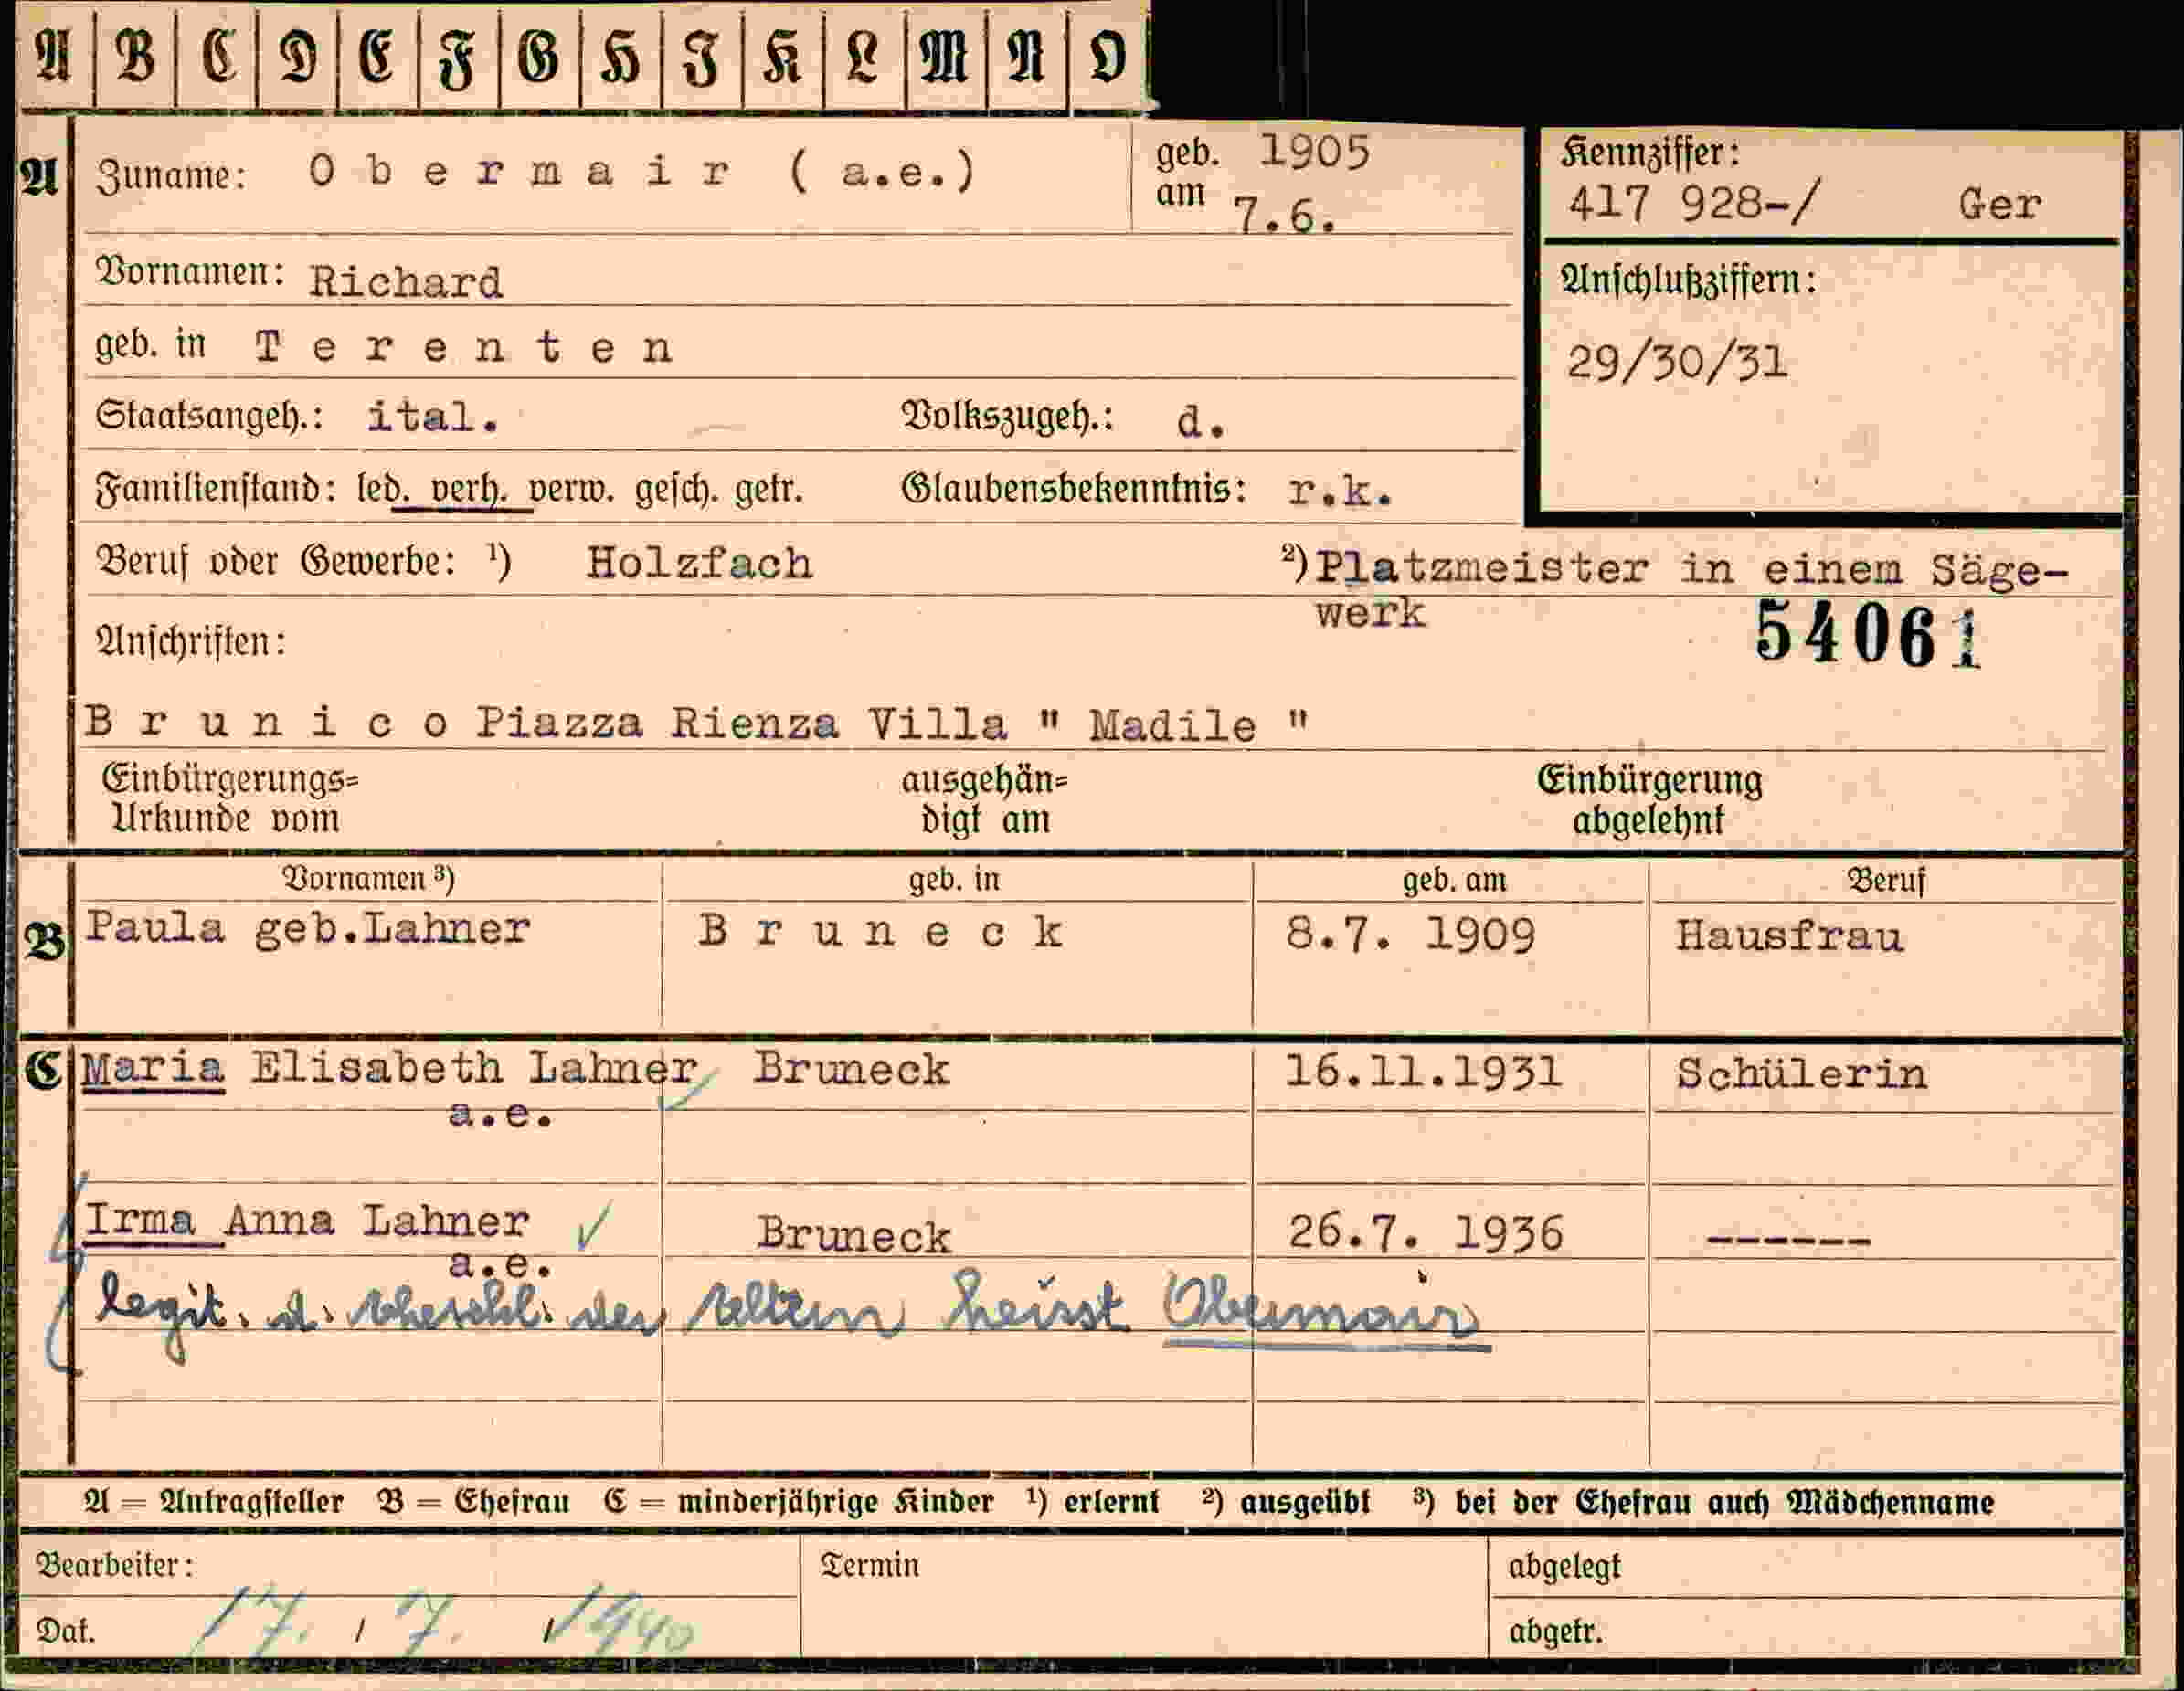 A B C D E F G H I K L M N O
A Zuname: Obermair (a.e.) geb. am 1905 7.6.
Kennziffer:
417 928-/ Ger
Vornamen: Richard
Anschlußziffern:
geb. in Terenten
29/30/31
Staatsangeh.: ital. Volkszugeh.: d.
Familienstand: led. verh. verw. gesch. getr. Glaubensbekenntnis: r.k.
Beruf oder Gewerbe: ¹) Holzfach ²) Platzmeister in einem Säge-
werk
Anschriften: 54061
Brunico Piazza Rienza Villa " Madile "
Einbürgerungs= ausgehän= Einbürgerung
Urkunde vom digt am abgelehnt
Vornamen ³) geb. in geb. am Beruf
B Paula geb.Lahner Bruneck 8.7. 1909 Hausfrau
C Maria Elisabeth Lahner Bruneck 16.11.1931 Schülerin
a.e.
Irma Anna Lahner Bruneck 26.7. 1936 ------
a.e.
legit. d. Eheschl. der Eltern heisst Obermair
A = Antragsteller B = Ehefrau C = minderjährige Kinder ¹) erlernt ²) ausgeübt ³) bei der Ehefrau auch Mädchenname
Bearbeiter: Termin abgelegt
Dat. 17. / 7. / 1940 abgetr.